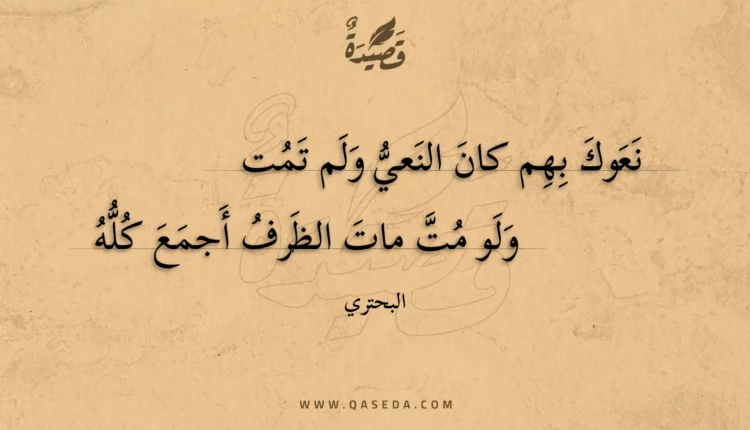 قَصِيْدَةٌ
نَعَوكَ بِهِم كانَ النَعيُّ وَلَم تَمُت
وَلَو مُتَّ ماتَ الظَرفُ أَجمَعَ كُلُّهُ
البحتري
WWW.QASEDA.COM